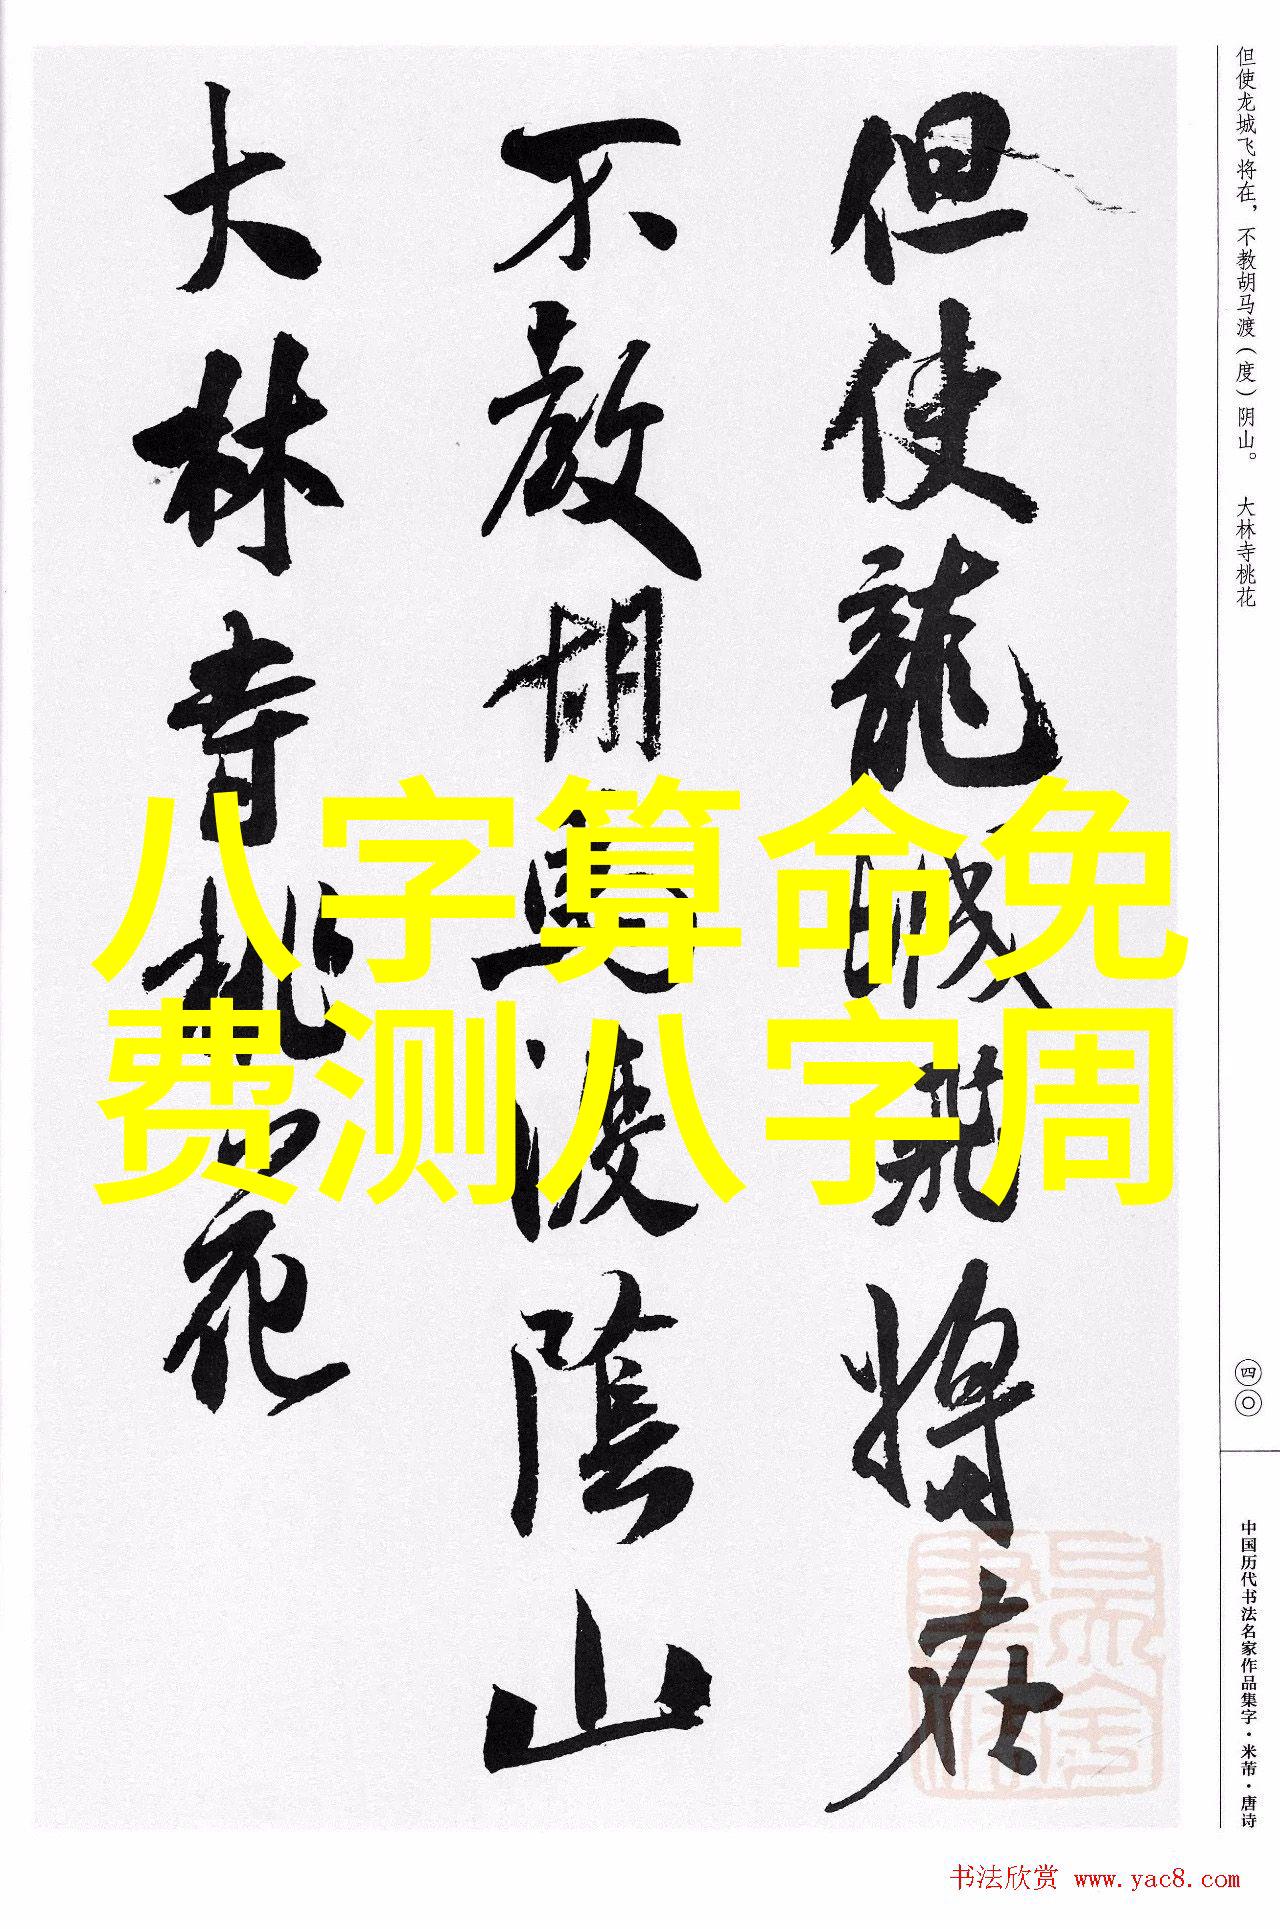 但使龙城飞将在，不教胡马渡（度）阴山。 大林寺桃花
但使龍城飛将在
不教胡馬渡陰山
大林寺桃花
八字算命免
费测八字周
四〇
中国历代书法名家作品集字·米芾·唐诗
书法欣赏 www.yac8.com